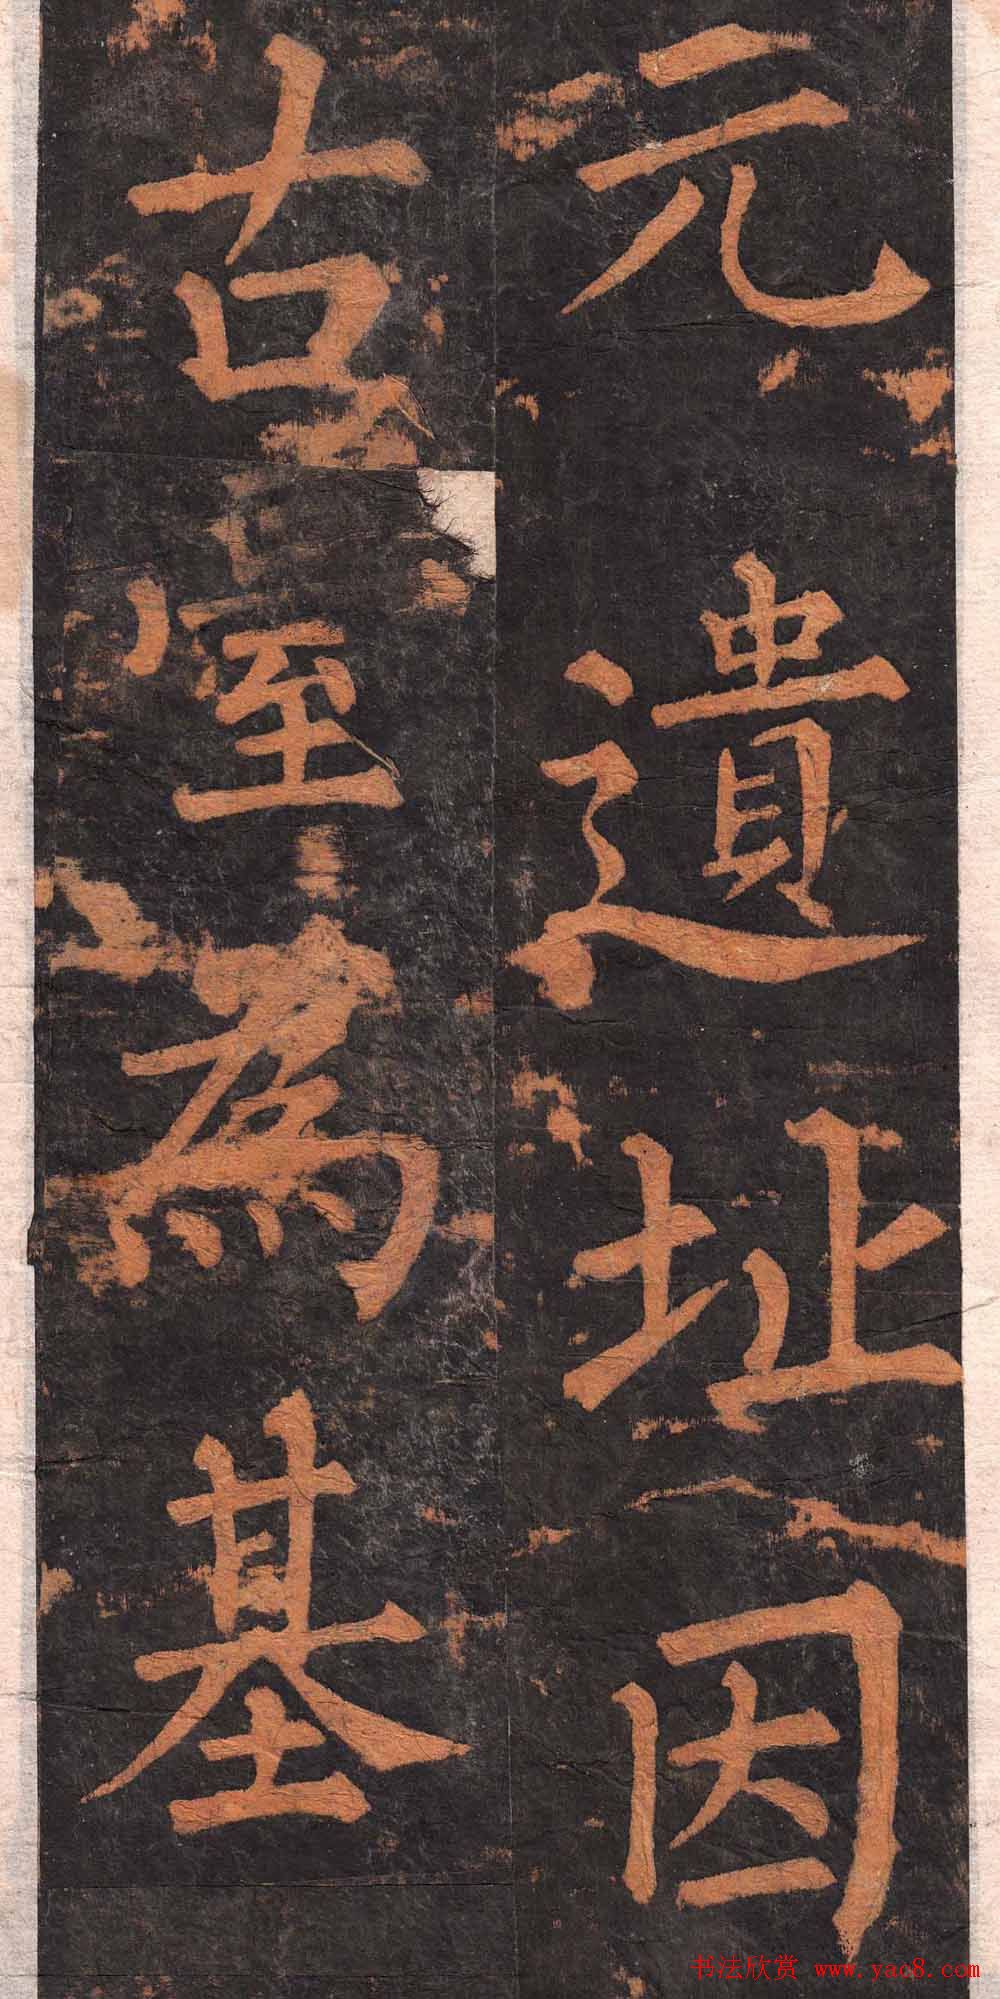 元遺址因
古室為基
书法欣赏 www.yac8.com